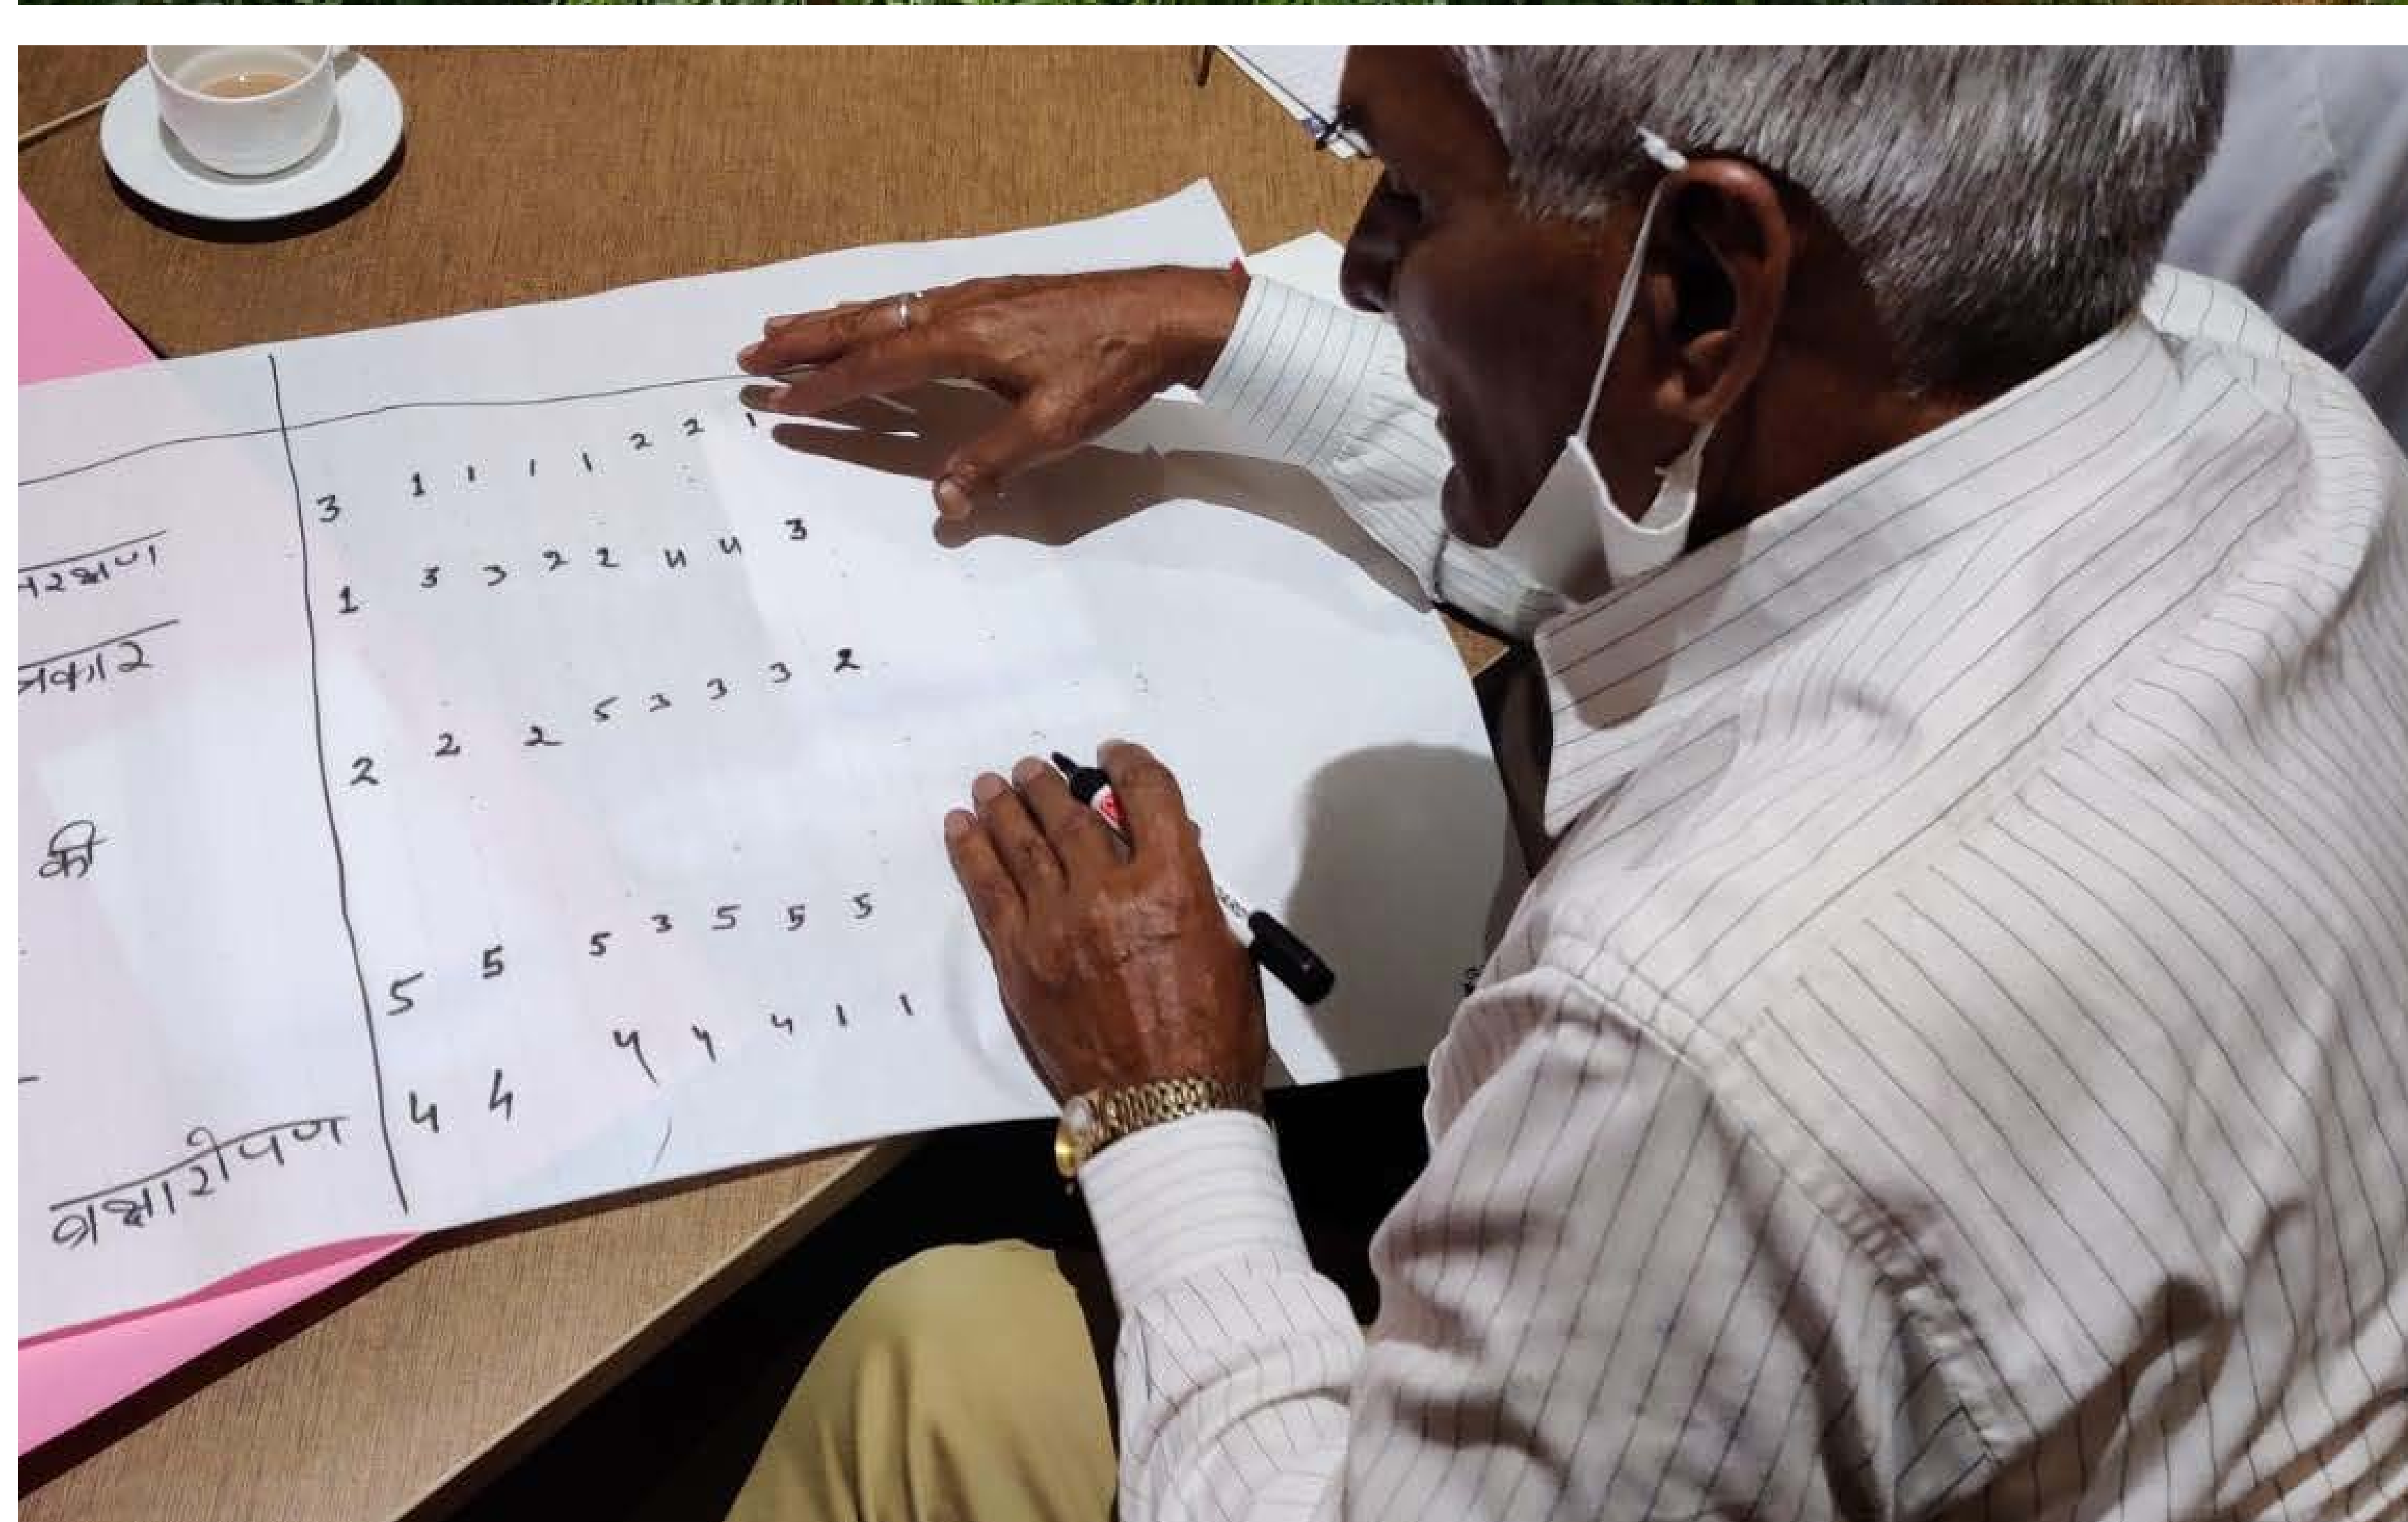 3 1 1 1 1 2 2 1
1 3 3 2 2 4 4 3
2 2 2 5 3 3 3 2
की
5 5 5 3 5 5 5
वृक्षारोपण 4 4 4 4 4 1 1